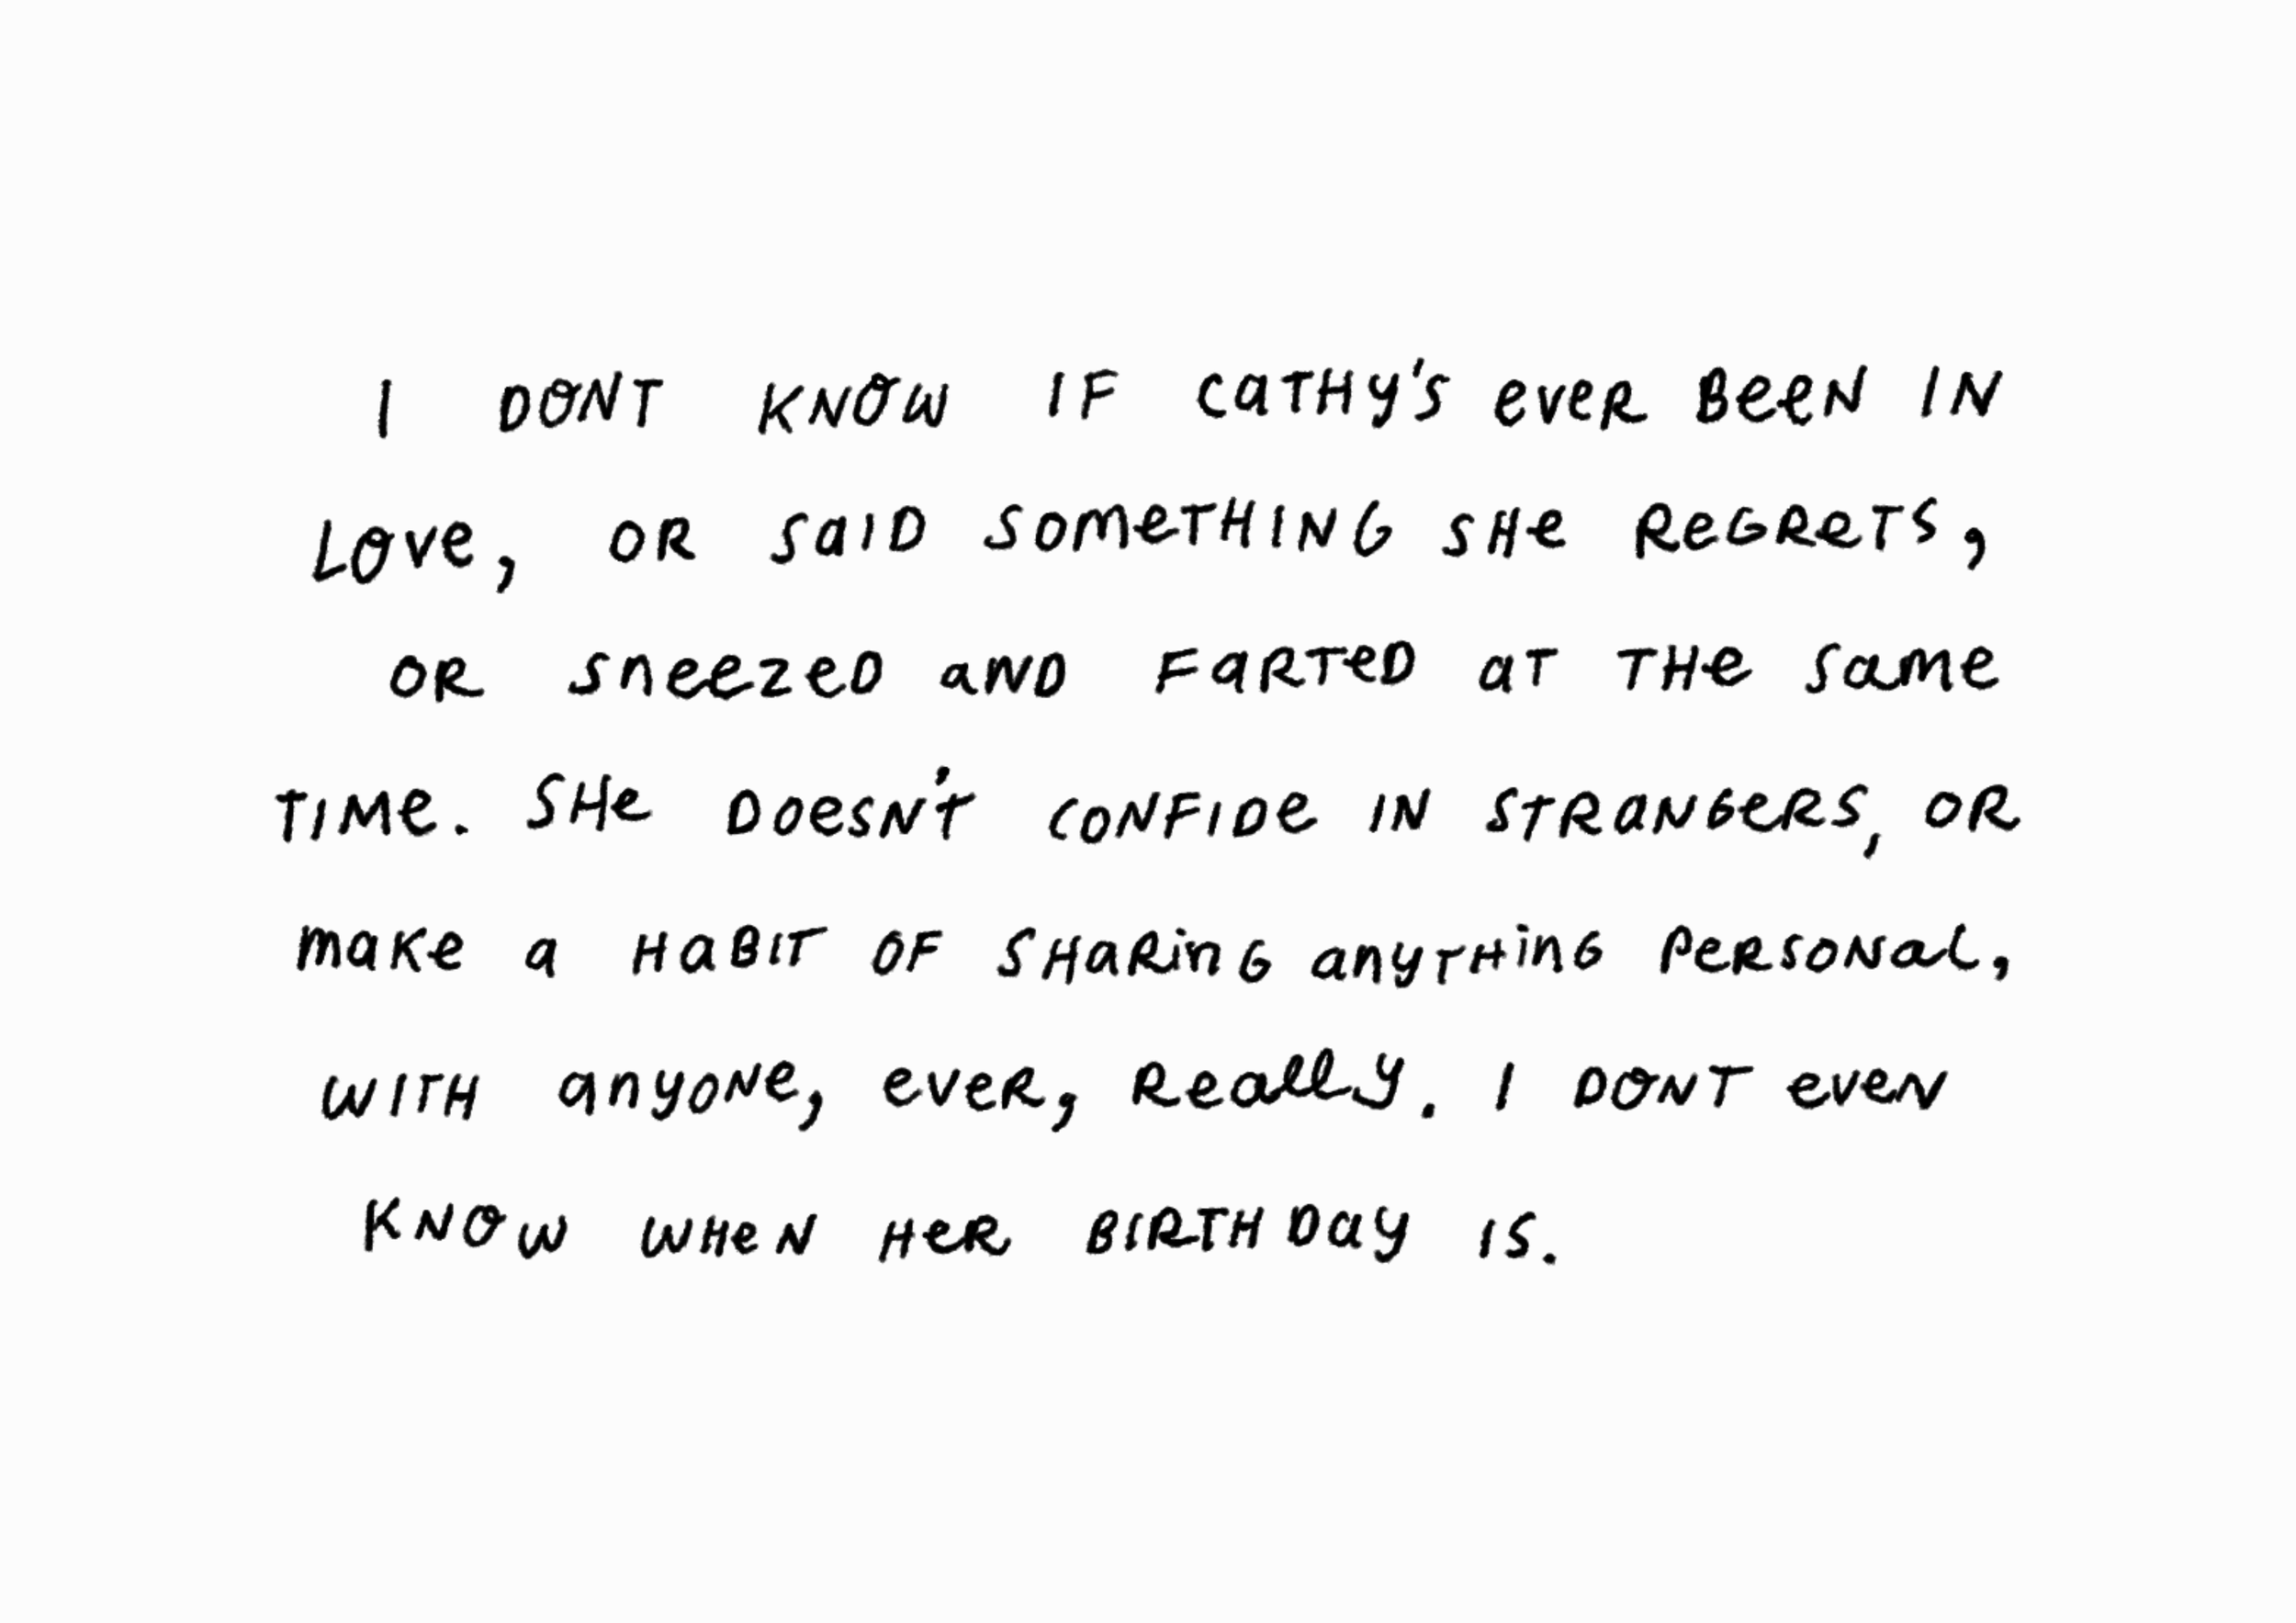 I DONT KNOW IF CATHY'S EVER BEEN IN
LOVE, OR SAID SOMETHING SHE REGRETS,
OR SNEEZED AND FARTED AT THE SAME
TIME. SHE DOESN'T CONFIDE IN STRANGERS, OR
MAKE A HABIT OF SHARING ANYTHING PERSONAL,
WITH ANYONE, EVER, REALLY. I DONT EVEN
KNOW WHEN HER BIRTHDAY IS.